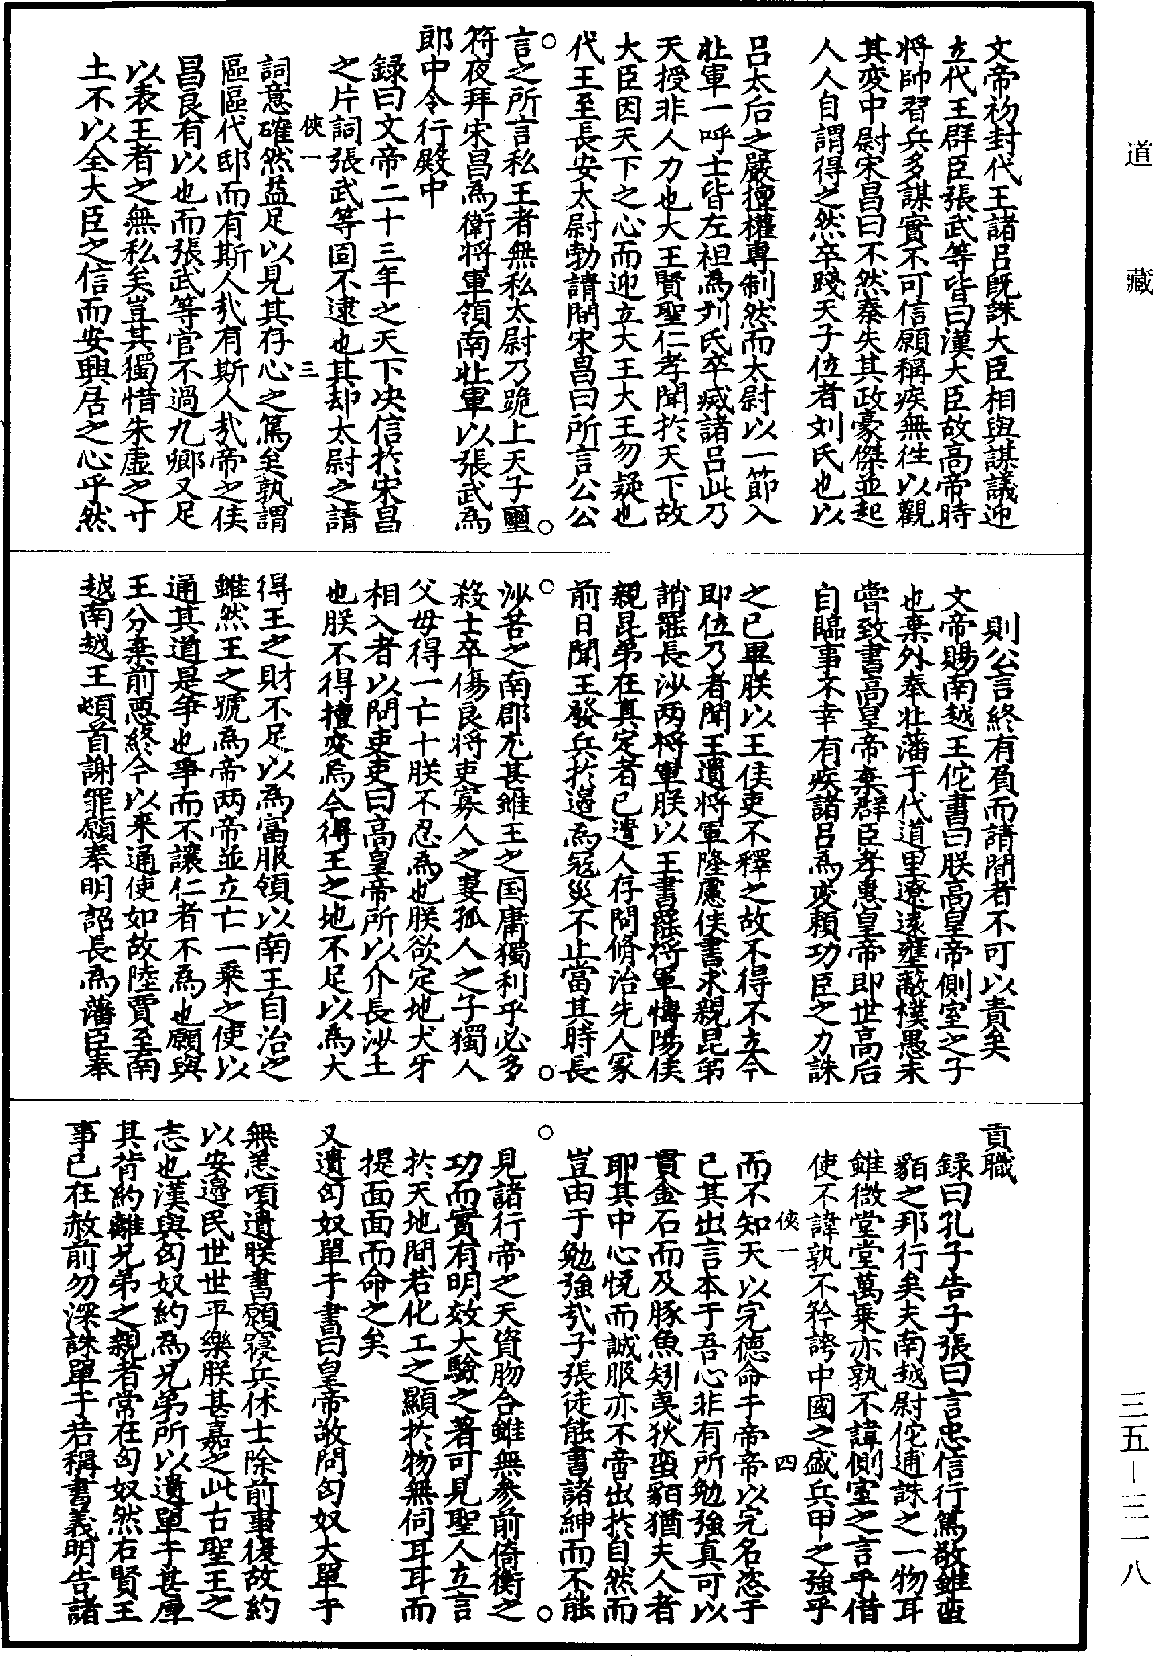 文帝初封代王諸呂既誅大臣相與謀議迎
立代王群臣張武等皆曰漢大臣故高帝時
將帥習兵多謀實不可信願稱疾無徃以觀
其変中尉宋昌曰不然秦失其政豪傑並起
人人自謂得之然卒踐天子位者刘氏也以
呂太后之嚴擅權専制然而太尉以一節入
北軍一呼士皆左袒為刘氏卒滅諸呂此乃
天授非人力也大王賢聖仁孝聞於天下故
大臣因天下之心而迎立大王大王勿疑也
代王至長安太尉勃請間宋昌曰所言公公
言之所言私王者無私太尉乃跪上天子璽
符夜拜宋昌為衛將軍領南北軍以張武為
郎中令行殿中
録曰文帝二十三年之天下决信於宋昌
之片詞張武等固不逮也其却太尉之請
俠一
三
詞意確然益足以見其存心之篤矣孰謂
區區代邸而有斯人㢤有斯人㢤帝之俟
昌良有以也而張武等官不過九卿又足
以表王者之無私矣豈其獨惜朱虚之寸
土不以全大臣之信而安興居之心乎然
則公言終有負而請間者不可以責矣
文帝賜南越王佗書曰朕高皇帝側室之子
也棄外奉北藩于代道里遼逺壅蔽樸愚未
嘗致書高皇帝棄群臣孝惠皇帝即世高后
自臨事不幸有疾諸呂為変頼功臣之力誅
之已畢朕以王侯吏不釋之故不得不立今
即位乃者聞王遺將軍隆慮侯書求親昆弟
請罷長沙两將軍朕以王書罷將軍博陽侯
親昆弟在真定者已遣人存問脩治先人冢
前日聞王發兵於邊為冦災不止當其時長
沙苦之南郡尤甚雖王之国庸獨利乎必多
殺士卒傷良将吏寡人之妻孤人之子獨人
父毋得一亡十朕不忍為也朕欲定地犬牙
相入者以問吏吏曰高皇帝所以介長沙土
也朕不得擅変焉今得王之地不足以為大
得王之財不足以為富服領以南王自治之
雖然王之號為帝两帝並立亡一乘之使以
通其道是争也争而不讓仁者不為也願與
王分棄前惡終今以来通使如故陸賈至南
越南越王頓首謝罪願奉明詔長為藩臣奉
貢職
録曰孔子告子張曰言忠信行篤敬雖蠻
貊之邦行矣夫南越尉佗逋誅之一物耳
雖微堂堂萬乗亦孰不諱側室之言乎借
使不諱孰不矜誇中國之盛兵甲之強乎
俠一
四
而不知天以完德命于帝帝以完名恣于
已其出言本于吾心非有所勉強真可以
貫金石而及豚魚矧夷狄蛮貊猶夫人者
耶其中心恱而誠服亦不啻出於自然而
豈由于勉強㢤子張徒能書諸紳而不能
見諸行帝之天資脗合雖無参前倚衡之
功而實有明效大驗之著可見聖人立言
於天地間若化工之顯於物無伺耳耳而
提面面而命之矣
又遺匈奴單于書曰皇帝敬問匈奴大單于
無恙頃遺朕書願寝兵休士除前事復故約
以安邊民世世平樂朕甚嘉之此古聖王之
志也漢與匈奴約為兄弟所以遺單于甚厚
其背約離兄弟之親者常在匈奴然右賢王
事已在赦前勿深誅單于若稱書義明告諸
道藏
三五—三一八